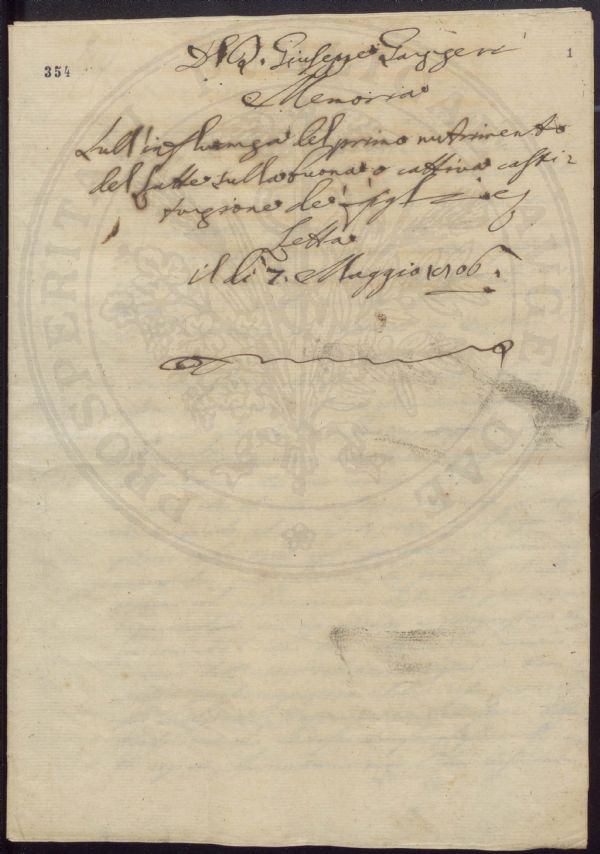 354
1
Del D. Giuseppe Gaggeri
Memoria
Sull'influenza del primo nutrimento
del Latte sulla buona o cattiva costi-
tuzione de' figli
Letta
il dì 7. Maggio 1806.
PROSPERITATI AUGENDAE